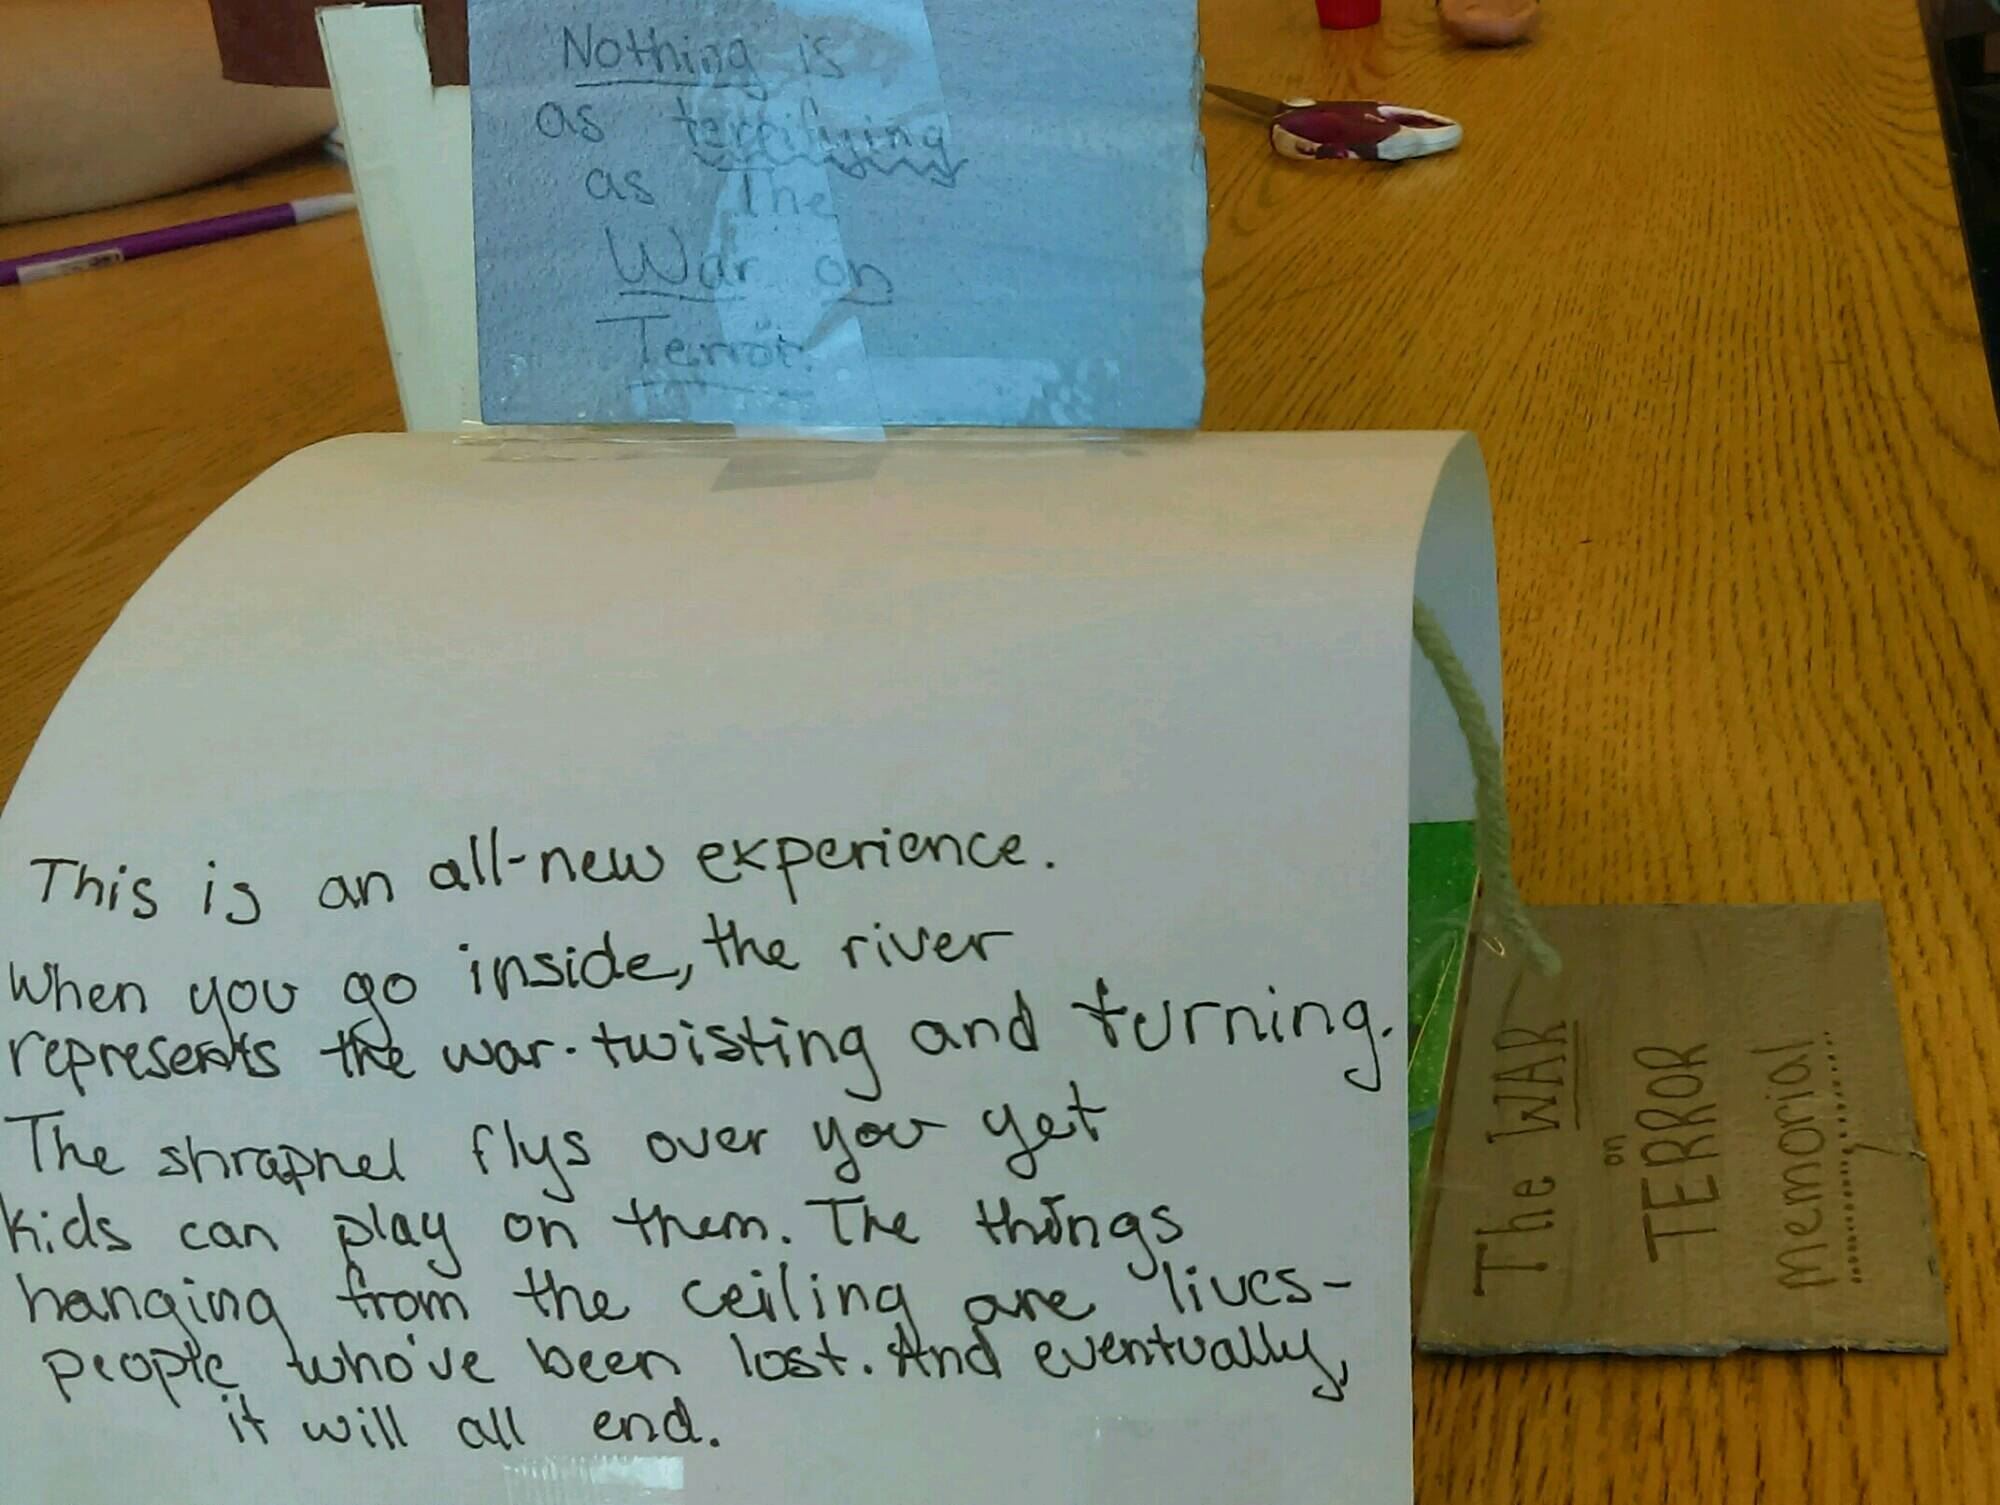 Nothing is
as terrifying
as The
War on
Terror.
This is an all-new experience.
When you go inside, the river
represents the war - twisting and turning.
The shrapnel flys over you yet
kids can play on them. The things
hanging from the ceiling are lives-
people who've been lost. And eventually,
it will all end.
The WAR
on
TERROR
memorial